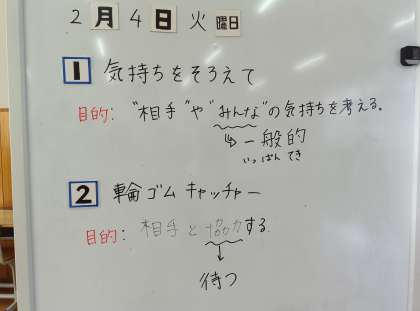 2月4日火曜日
1 気持ちをそろえて
目的: "相手"や"みんな"の気持ちを考える。
↳一般的
いっぱん てき
2 輪ゴムキャッチャー
目的: 相手と協力する。
↓
待つ